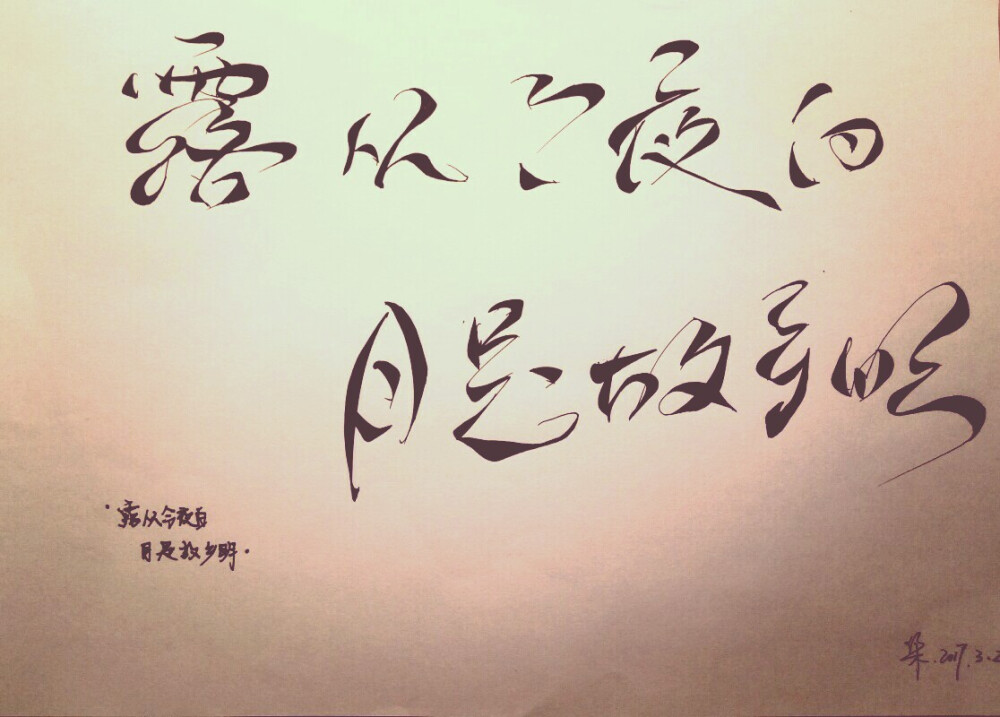 露从今夜白
月是故乡明
露从今夜白
月是故乡明
.2017.3.2